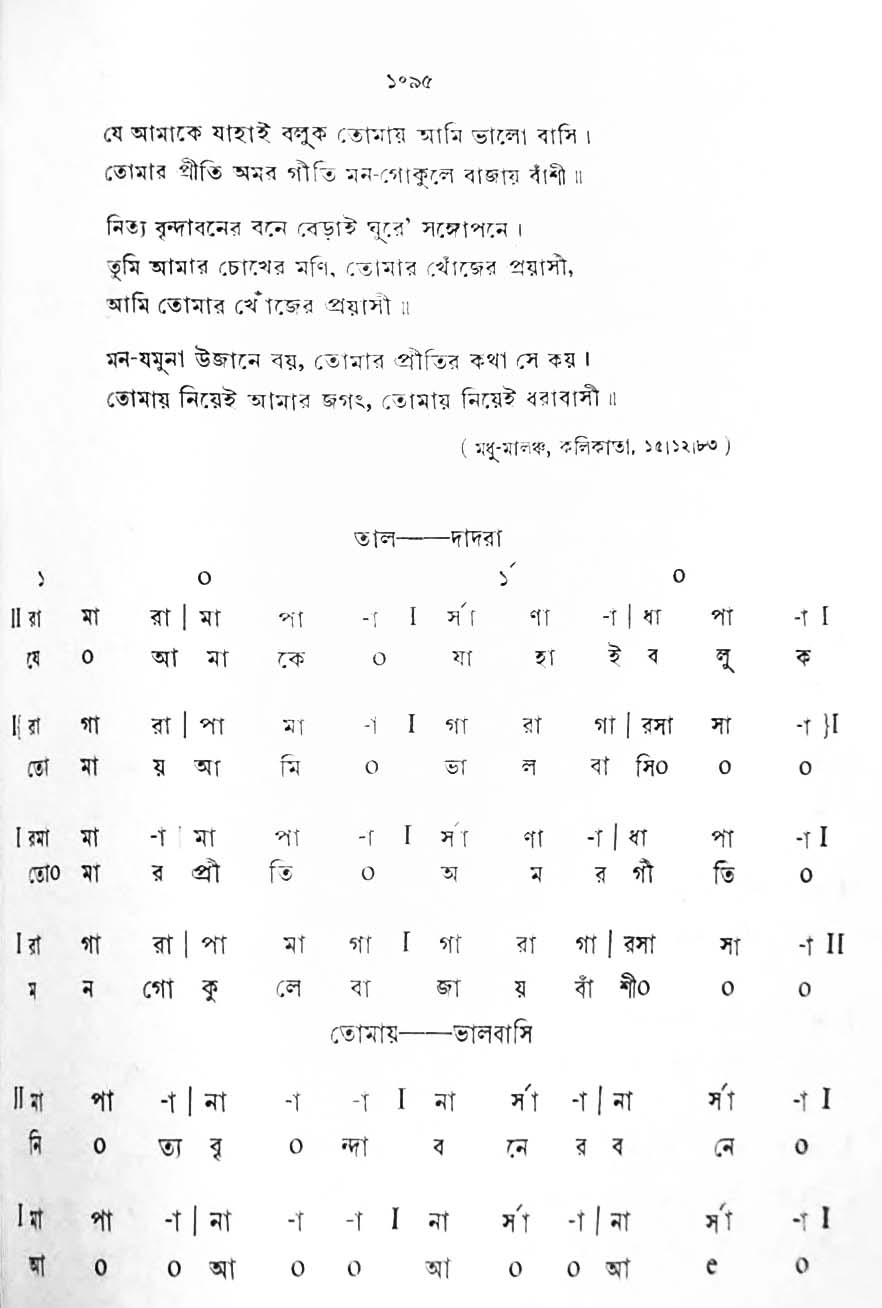 ১০৯৫
যে আমাকে যাহাই বলুক তোমায় আমি ভালো বাসি।
তোমার প্রীতি অমর গীতি মন-গোকুলে বাজায় বাঁশী॥
নিত্য বৃন্দাবনের বনে বেড়াই ঘুরে’ সঙ্গোপনে।
তুমি আমার চোখের মণি, তোমার খোঁজের প্রয়াসী,
আমি তোমার খোঁজের প্রয়াসী॥
মন-যমুনা উজানে বয়, তোমার প্রীতির কথা সে কয়।
তোমায় নিয়েই আমার জগৎ, তোমায় নিয়েই ধরাবাসী॥
( মধু-মালঞ্চ, কলিকাতা, ১৫।১২।৮৩ )
তাল——দাদরা
১ ০ ১́ ০
II রা মা রা | মা পা -া I র্সা ণা -া | ধা পা -া I
যে ০ আ মা কে ০ যা হা ই ব লু ক
I{ রা গা রা | পা মা -া I গা রা গা | রসা সা -া }I
তো মা য় আ মি ০ ভা ল বা সি০ ০ ০
I রমা মা -া | মা পা -া I র্সা ণা -া | ধা পা -া I
তো০ মা র প্রী তি ০ অ ম র গী তি ০
I রা গা রা | পা মা গা I গা রা গা | রসা সা -া II
ম ন গো কু লে বা জা য় বাঁ শী০ ০ ০
তোমায়——ভালবাসি
II মা পা -া | না -া -া I না র্সা -া | না র্সা -া I
নি ০ ত্য বৃ ০ ন্দা ব নে র ব নে ০
I মা পা -া | না -া -া I না র্সা -া | না র্সা -া I
আ ০ ০ আ ০ ০ আ ০ ০ আ e ০